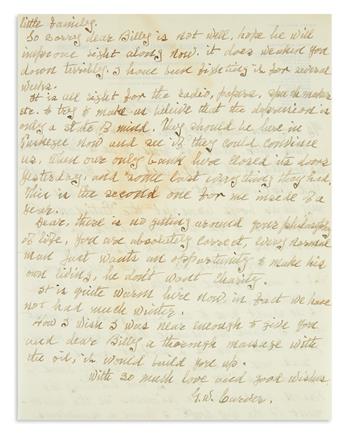 little family.
So sorry dear Billy is not well, hope he will
improve right along now. it does weaken you
down terribly. I have been fighting it for several
weeks.
It is all right for the radio, papers, speech makers
etc. to try to make us believe that the depression is
only a state of mind. They should be here in
Tuskegee now and see if they could convince
us. When our only bank here closed its doors
yesterday, and some lost everything they had,
this is the second one for me inside of a
year.
Dear, there is no getting around your philosophy
of life, you are absolutely correct, every normal
man just wants an opportunity to make his
own living, he don't want charity.
It is quite warm here now, in fact we have
not had much winter.
How I wish I was near enough to give you
and dear Billy a thorough massage with
the oil, it would build you up.
With so much love and good wishes
G.W. Carver.